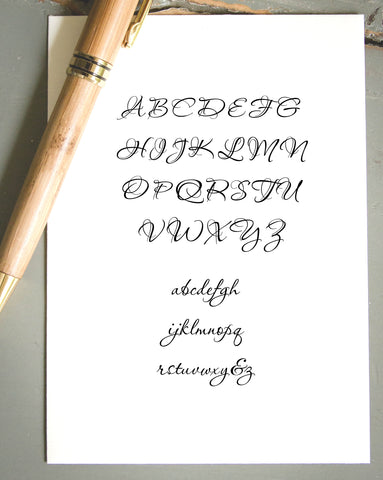 ABCDEFG
HIJKLMN
OPQRSTU
VWXYZ
abcdefgh
ijklmnopq
rstuvwxy&z